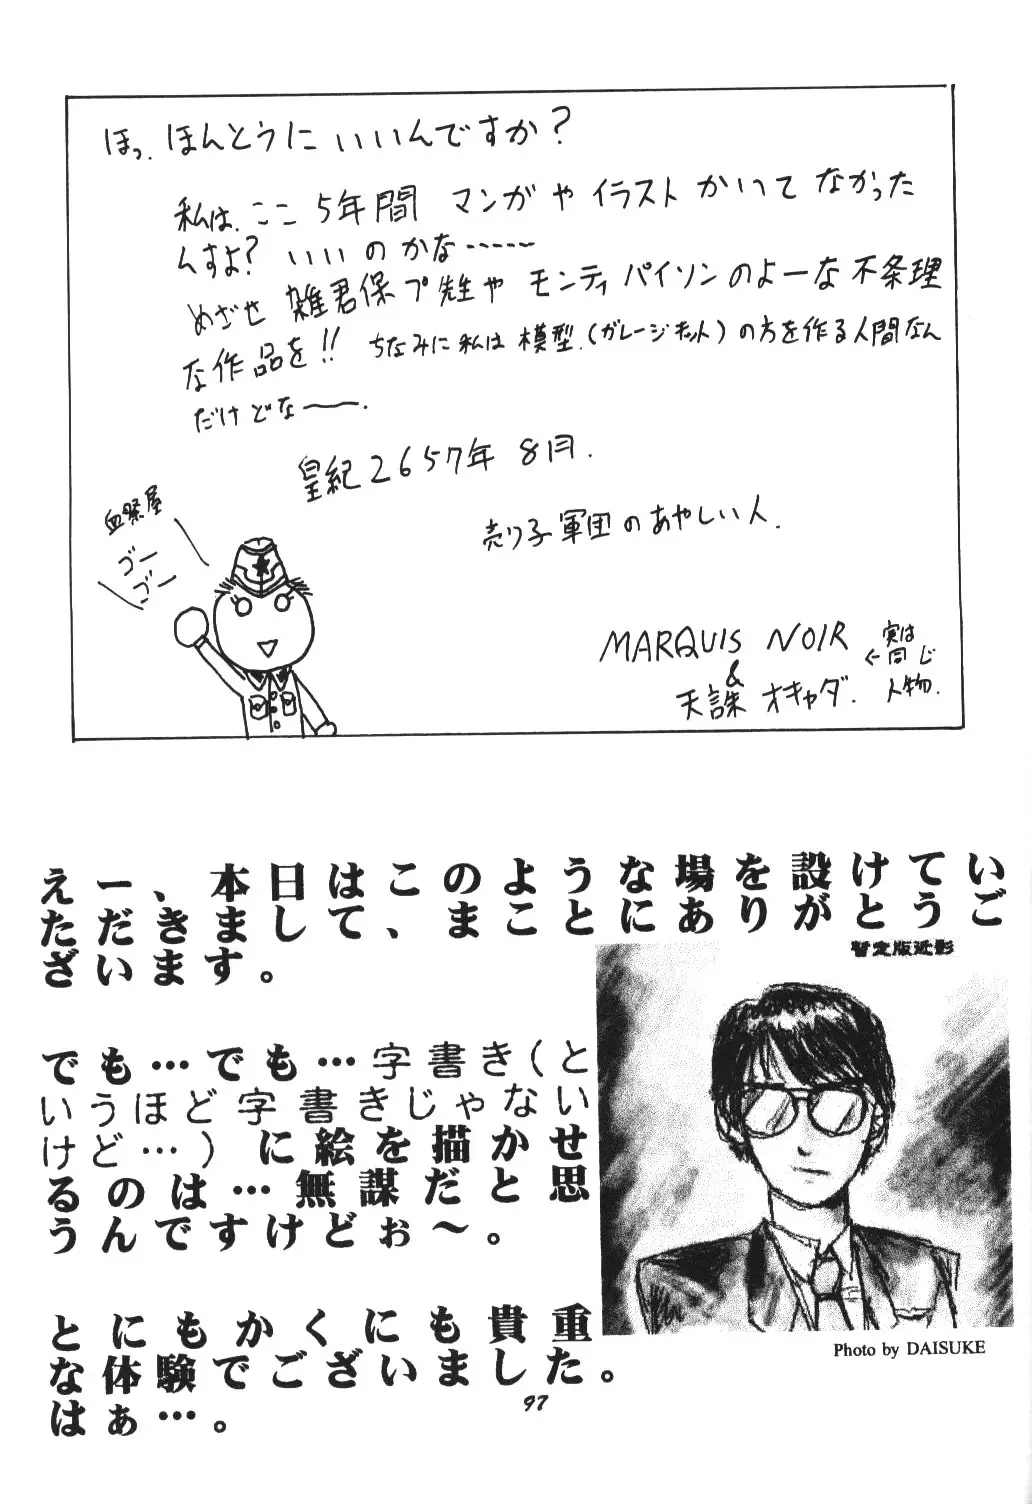 ほっ、ほんとうに いいんですか?
私は、ここ 5年間 マンガや イラスト かいて なかった
んすよ? いいのかな……
めざせ 雑君保プ先生や モンティ パイソンのよーな 不条理
な作品を!! ちなみに 私は 模型(ガレージキット)の方を作る人間なん
だけどなー。
皇紀2657年 8月.
血祭屋
ゴー
ゴー
売り子軍団のあやしい人.
MARQUIS NOIR
&
天誅 オキャダ.
実は
←同じ
人物.
えー、本日はこのような場を設けてい
ただきまして、まことにありがとうご
ざいます。
暂定版近影
でも…でも…字書き(と
いうほど字書きじゃない
けど…)に絵を描かせ
るのは…無謀だと思
うんですけどぉ〜。
とにもかくにも貴重
な体験でございました。
はぁ…。
Photo by DAISUKE
97